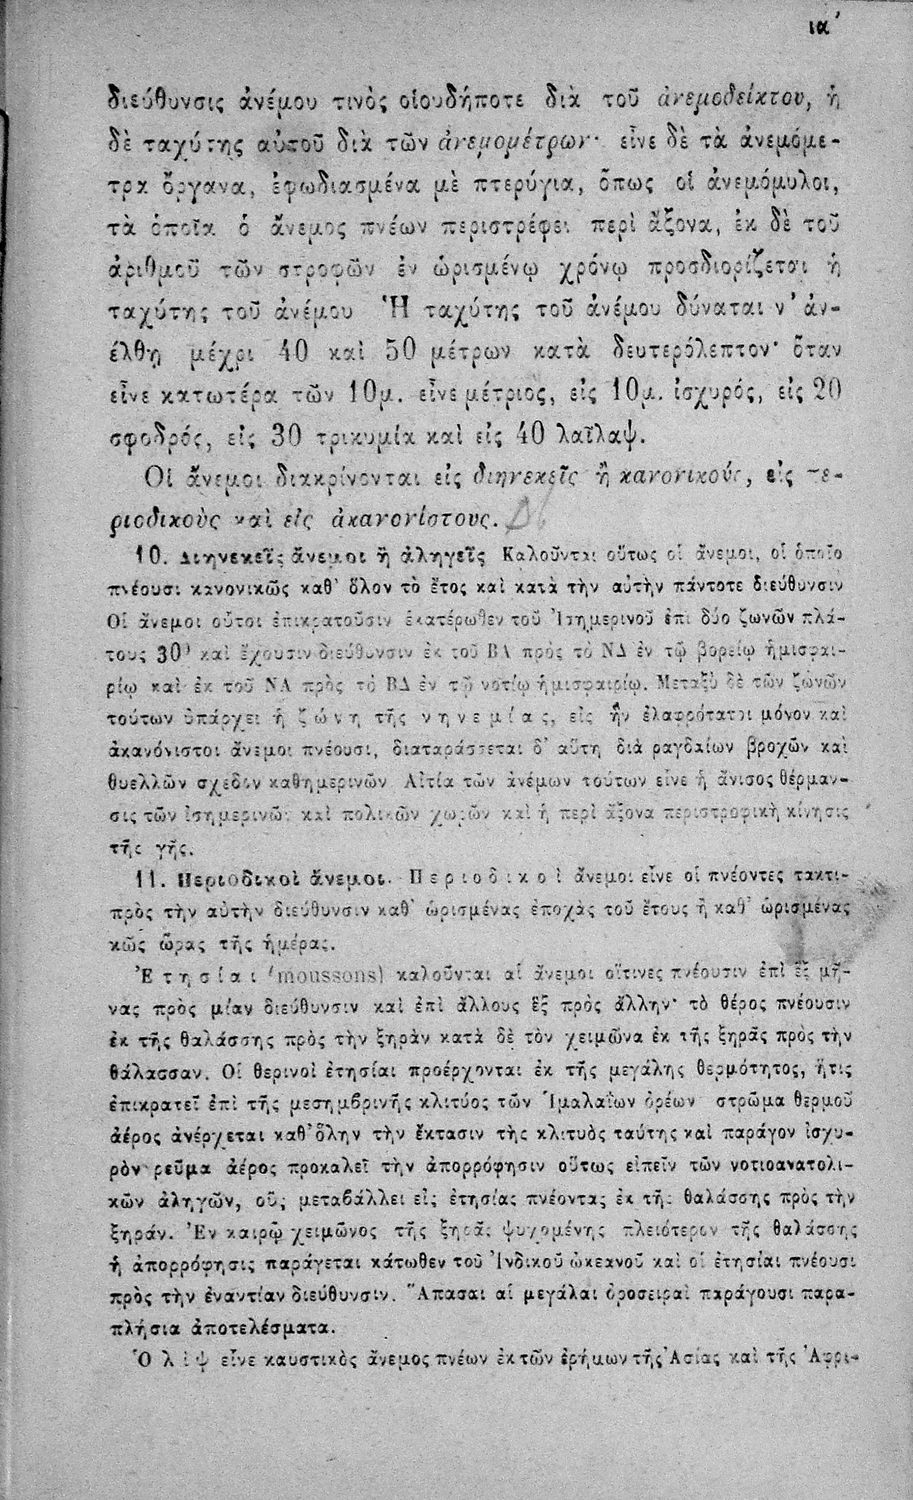 ια΄
διεύθυνσις ἀνέμου τινὸς οἱουδήποτε διὰ τοῦ ἀνεμοδείκτου, ἡ
δὲ ταχύτης αὐτοῦ διὰ τῶν ἀνεμομέτρων· εἶνε δὲ τὰ ἀνεμόμε-
τρα ὄργανα, ἐφωδιασμένα μὲ πτερύγια, ὅπως οἱ ἀνεμόμυλοι,
τὰ ὁποῖα ὁ ἄνεμος πνέων περιστρέφει περὶ ἄξονα, ἐκ δὲ τοῦ
ἀριθμοῦ τῶν στροφῶν ἐν ὡρισμένῳ χρόνῳ προσδιορίζεται ἡ
ταχύτης τοῦ ἀνέμου Ἡ ταχύτης τοῦ ἀνέμου δύναται ν' ἀν-
έλθῃ μέχρι 40 καὶ 50 μέτρων κατὰ δευτερόλεπτον· ὅταν
εἶνε κατωτέρα τῶν 10μ. εἶνε μέτριος, εἰς 10μ. ἰσχυρός, εἰς 20
σφοδρός, εἰς 30 τρικυμία καὶ εἰς 40 λαῖλαψ.
Οἱ ἄνεμοι διακρίνονται εἰς διηνεκεῖς ἢ κανονικούς, εἰς πε-
ριοδικοὺς καὶ εἰς ἀκανονίστους.
10. Διηνεκεῖς ἄνεμοι ἢ ἀληγεῖς Καλοῦνται οὕτως οἱ ἄνεμοι, οἱ ὁποῖο
πνέουσι κανονικῶς καθ' ὅλον τὸ ἔτος καὶ κατὰ τὴν αὐτὴν πάντοτε διεύθυνσιν
Οἱ ἄνεμοι οὗτοι ἐπικρατοῦσιν ἑκατέρωθεν τοῦ Ἰσημερινοῦ ἐπὶ δύο ζωνῶν πλά-
τους 30° καὶ ἔχουσιν διεύθυνσιν ἐκ τοῦ ΒΑ πρὸς τὸ ΝΔ ἐν τῷ βορείῳ ἡμισφαι-
ρίῳ καὶ ἐκ τοῦ ΝΑ πρὸς τὸ ΒΔ ἐν τῷ νοτίῳ ἡμισφαιρίῳ. Μεταξὺ δὲ τῶν ζωνῶν
τούτων ὑπάρχει ἡ ζώνη τῆς νηνεμίας, εἰς ἣν ἐλαφρότατοι μόνον καὶ
ἀκανόνιστοι ἄνεμοι πνέουσι, διαταράσσεται δ' αὕτη διὰ ραγδαίων βροχῶν καὶ
θυελλῶν σχεδὸν καθημερινῶν Αἰτία τῶν ἀνέμων τούτων εἶνε ἡ ἄνισος θέρμαν-
σις τῶν ἰσημερινῶν καὶ πολικῶν χωρῶν καὶ ἡ περὶ ἄξονα περιστροφικὴ κίνησις
τῆς γῆς.
11. Περιοδικοὶ ἄνεμοι. Περιοδικοὶ ἄνεμοι εἶνε οἱ πνέοντες τακτι-
πρὸς τὴν αὐτὴν διεύθυνσιν καθ' ὡρισμένας ἐποχὰς τοῦ ἔτους ἢ καθ' ὡρισμένας
κῶς ὥρας τῆς ἡμέρας.
Ἐτησίαι (moussons) καλοῦνται αἱ ἄνεμοι οἵτινες πνέουσιν ἐπὶ ἓξ μῆ-
νας πρὸς μίαν διεύθυνσιν καὶ ἐπὶ ἄλλους ἓξ πρὸς ἄλλην· τὸ θέρος πνέουσιν
ἐκ τῆς θαλάσσης πρὸς τὴν ξηρὰν κατὰ δὲ τὸν χειμῶνα ἐκ τῆς ξηρᾶς πρὸς τὴν
θάλασσαν. Οἱ θερινοὶ ἐτησίαι προέρχονται ἐκ τῆς μεγάλης θερμότητος, ἥτις
ἐπικρατεῖ ἐπὶ τῆς μεσημβρινῆς κλιτύος τῶν Ἱμαλαΐων ὀρέων στρῶμα θερμοῦ
ἀέρος ἀνέρχεται καθ' ὅλην τὴν ἔκτασιν τῆς κλιτυὸς ταύτης καὶ παράγον ἰσχυ-
ρὸν ρεῦμα ἀέρος προκαλεῖ τὴν ἀπορρόφησιν οὕτως εἰπεῖν τῶν νοτιοανατολι-
κῶν ἀληγῶν, οὓς μεταβάλλει εἰς ἐτησίας πνέοντας ἐκ τῆς θαλάσσης πρὸς τὴν
ξηράν. Ἐν καιρῷ χειμῶνος τῆς ξηρᾶς ψυχομένης πλειότερον τῆς θαλάσσης
ἡ ἀπορρόφησις παράγεται κάτωθεν τοῦ Ἰνδικοῦ ὠκεανοῦ καὶ οἱ ἐτησίαι πνέουσι
πρὸς τὴν ἐναντίαν διεύθυνσιν. Ἅπασαι αἱ μεγάλαι ὀροσειραὶ παράγουσι παρα-
πλήσια ἀποτελέσματα.
Ὁ λὶψ εἶνε καυστικὸς ἄνεμος πνέων ἐκ τῶν ἐρήμων τῆς Ἀσίας καὶ τῆς Ἀφρι-